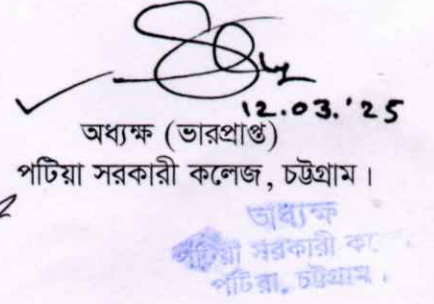 12.03.'25
অধ্যক্ষ (ভারপ্রাপ্ত)
পটিয়া সরকারী কলেজ, চট্টগ্রাম।
অধ্যক্ষ
পটিয়া সরকারী
পটিয়া, চট্টগ্রাম।